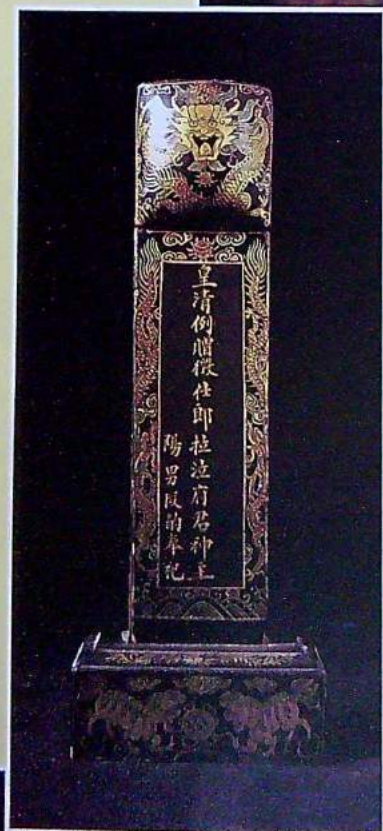 皇清例贈徵仕郎拉泣府君神主
陽男阪的奉祀